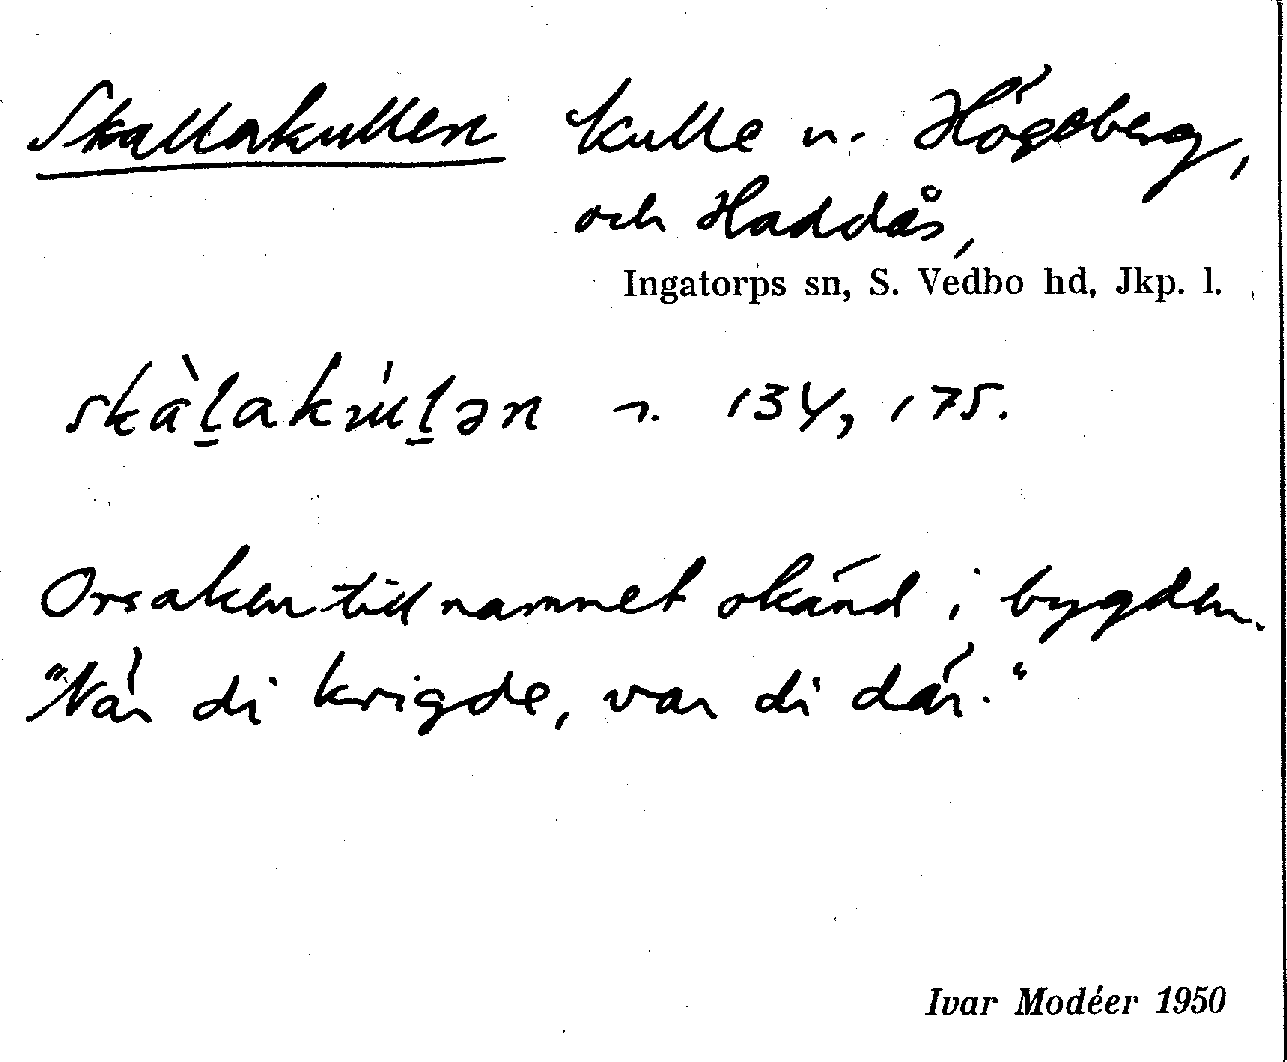 Skallakullen kulle n. Högeberg,
och Haddås,
Ingatorps sn, S. Vedbo hd, Jkp. l.
skàl̠akúl̠ən n. 134, 175.
Orsaken till namnet okänd i bygden.
"När di krigde, var di där."
Ivar Modéer 1950